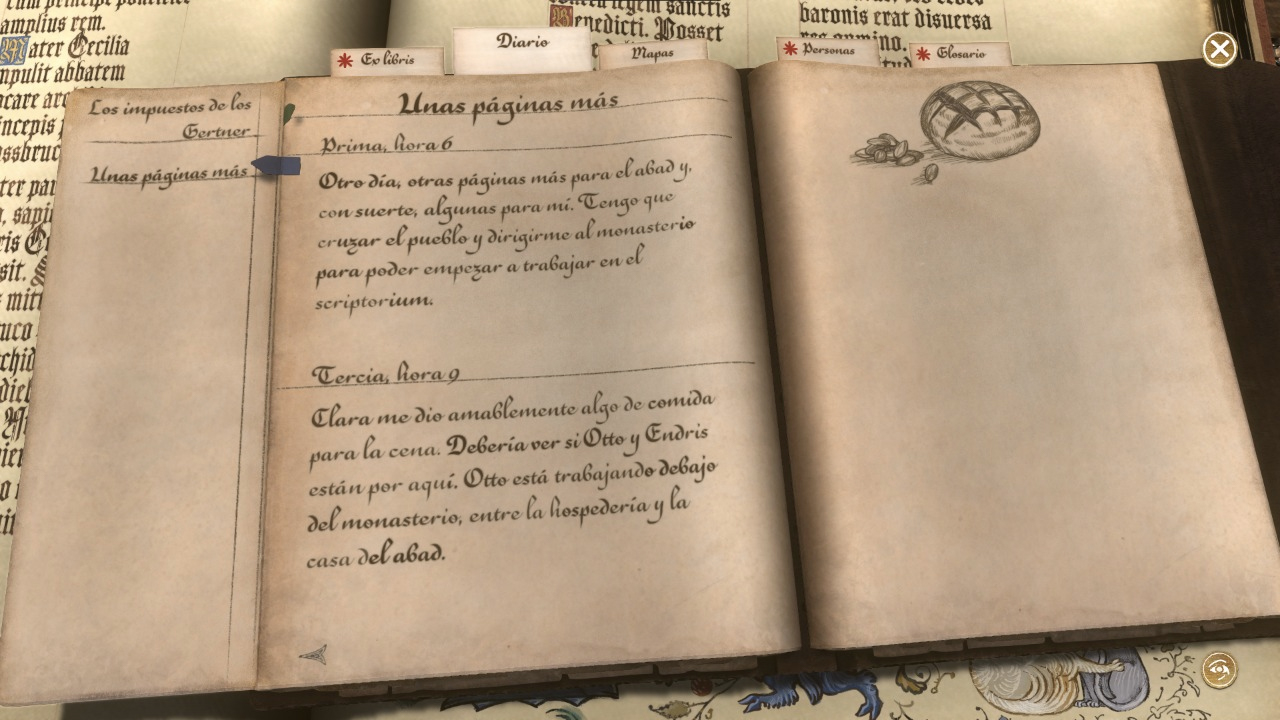 amplius rem.
ater Cecilia
npulit abbatem
Benedicti. Posset
baronis erat disuersa
Ex libris
Diario
Mapas
Personas
Glosario
Los impuestos de los
Gertner
Unas páginas más
Unas páginas más
Prima, hora 6
Otro día, otras páginas más para el abad y,
con suerte, algunas para mí. Tengo que
cruzar el pueblo y dirigirme al monasterio
para poder empezar a trabajar en el
scriptorium.
Tercia, hora 9
Clara me dio amablemente algo de comida
para la cena. Debería ver si Otto y Endris
están por aquí. Otto está trabajando debajo
del monasterio, entre la hospedería y la
casa del abad.